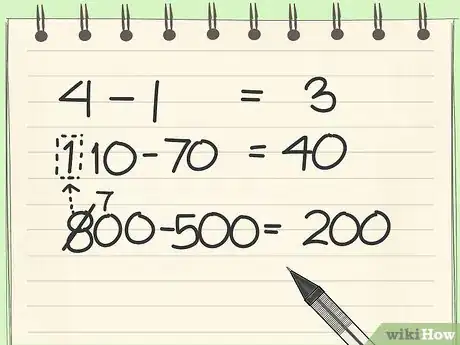 4 - 1 = 3
1 10 - 70 = 40
7
800 - 500 = 200
wikiHow